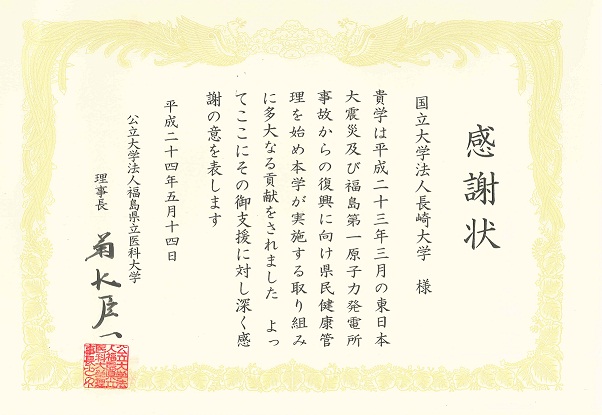 感謝状
国立大学法人長崎大学 様
貴学は平成二十三年三月の東日本
大震災及び福島第一原子力発電所
事故からの復興に向け県民健康管
理を始め本学が実施する取り組み
に多大なる貢献をされました よっ
てここにその御支援に対し深く感
謝の意を表します
平成二十四年五月十四日
公立大学法人福島県立医科大学
理事長 菊地臣一